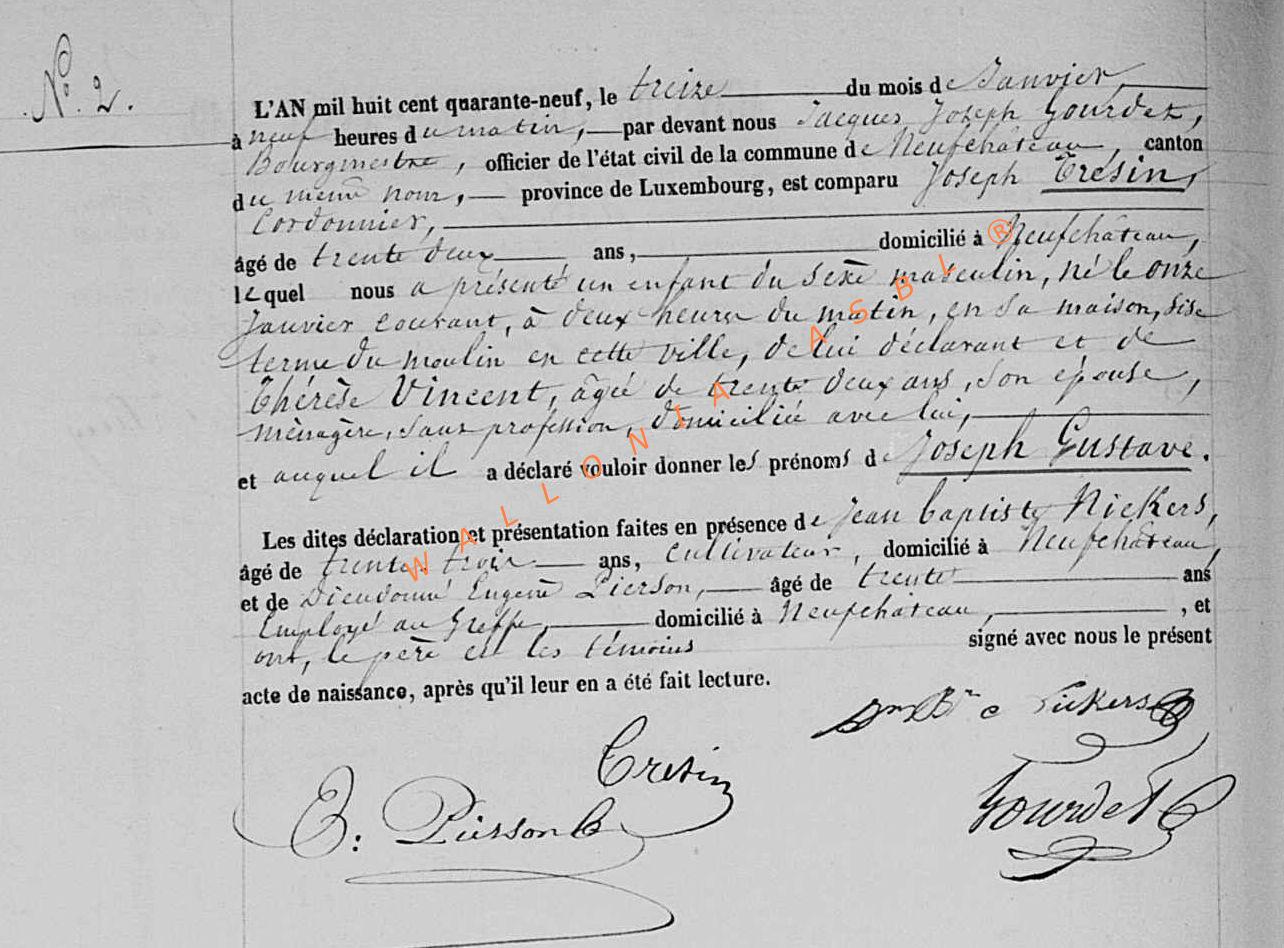 N.º 2.
L'AN mil huit cent quarante-neuf, le treize du mois de Janvier,
à neuf heures du matin, par devant nous Jacques Joseph Gourdet,
Bourgmestre, officier de l'état civil de la commune de Neufchâteau, canton
du même nom, province de Luxembourg, est comparu Joseph Tresin,
Cordonnier,
âgé de trente deux ans, domicilié à Neufchâteau,
lequel nous a présenté un enfant du sexe masculin, né le onze
Janvier courant, à deux heures du matin, en sa maison, sise
terme du moulin en cette ville, de lui déclarant et de
Thérèse Vincent, âgée de trente deux ans, son épouse,
ménagère, sans profession, domiciliée avec lui,
et auquel il a déclaré vouloir donner les prénoms de Joseph Gustave.
Les dites déclaration et présentation faites en présence de Jean Baptiste Nickers,
âgé de trente trois ans, Cultivateur, domicilié à Neufchâteau,
et de Dieudonné Eugène Pierson, âgé de trente ans
Employé au Greffe, domicilié à Neufchâteau, , et
ont, le père et les témoins signé avec nous le présent
acte de naissance, après qu'il leur en a été fait lecture.
Nickers
Tresin
Gourdet
E: Pierson
WALLONIA ASBL ®